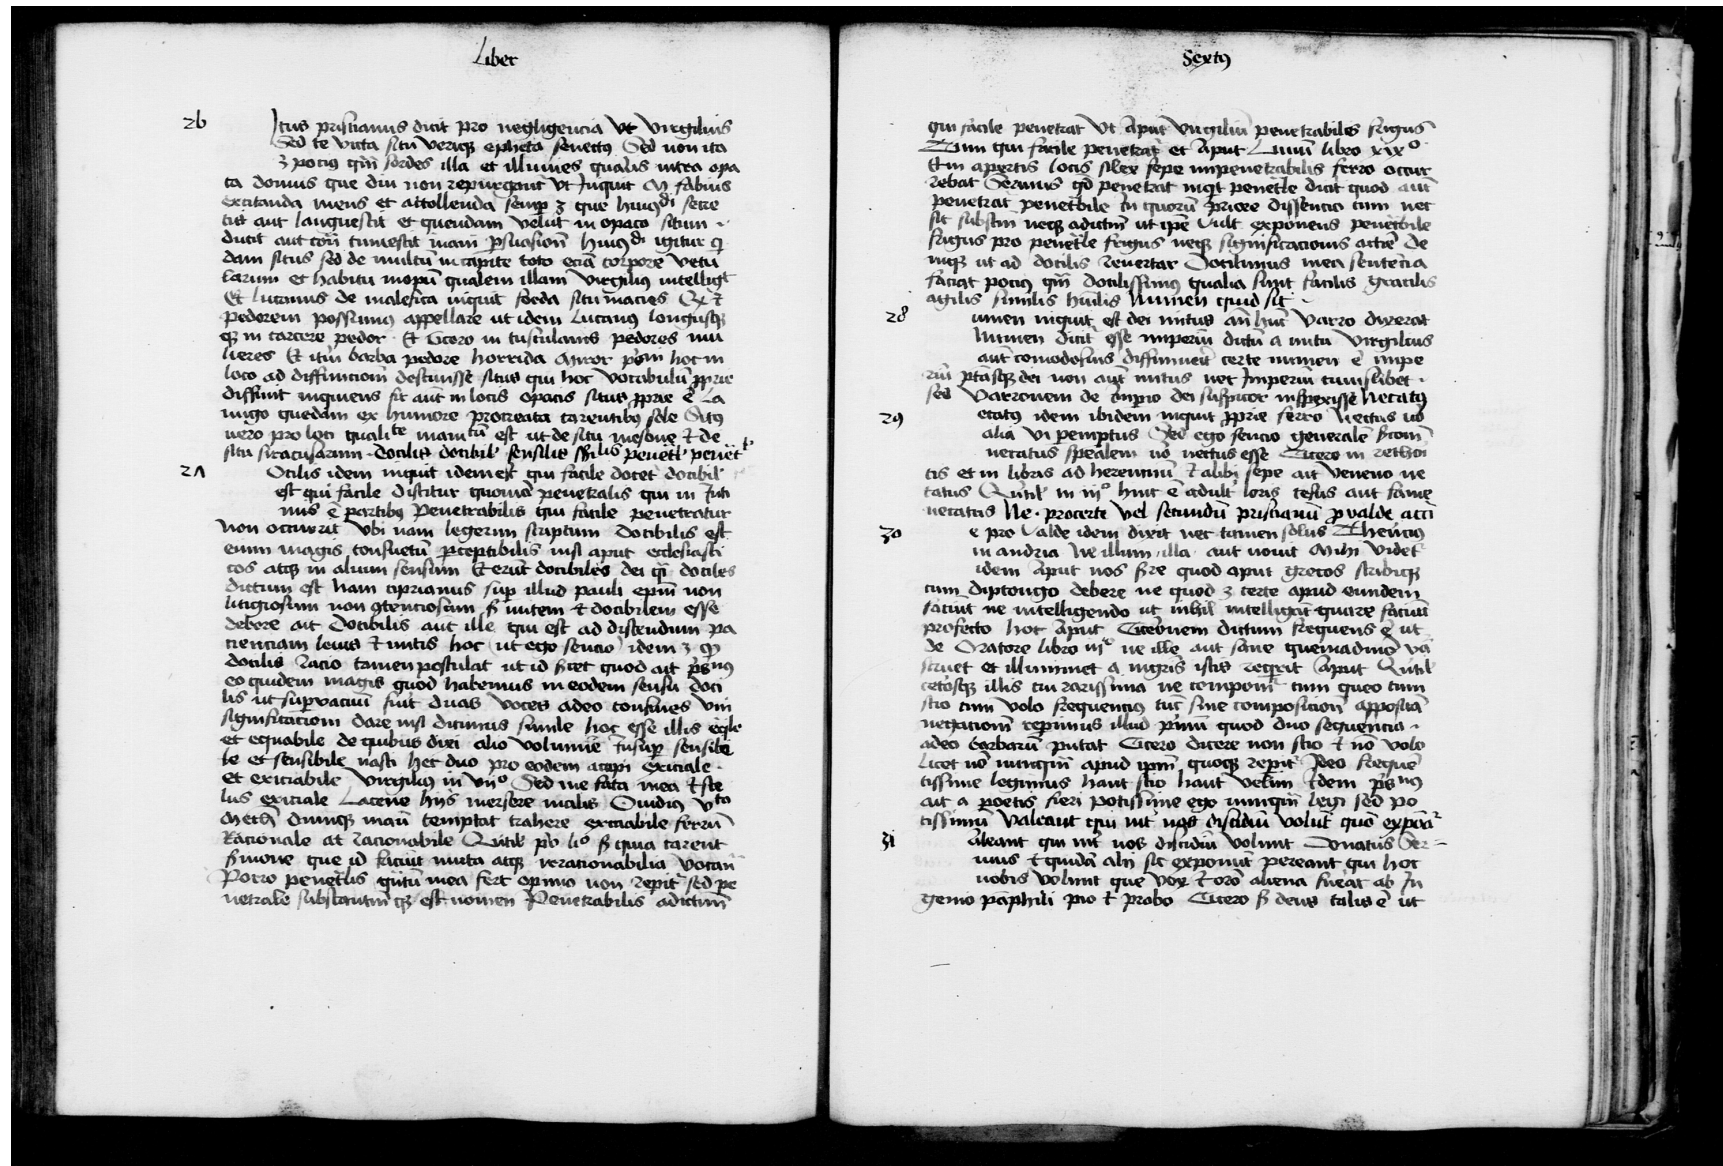 Liber
26
Itus priscianus dicit pro negligencia Vt Virgilius
Sed te victa situ verique epheta senectus Sed non ita
ʒ pocius qm̄ sordes illa et illuuies qualis intra opa
ca domus que diu non repurgant͛ Vt Inquit M fabius
excitanda mens et attollenda semp̄ ʒ que huiusdi secre
tis aut languescit et quendam velut in opaco situm
ducit aut cont͛ tumescit inani p̱suasion̄ huiusdi igitur q
dam situs sed de multu in capite toto eciā corpore vetu
larum et habitu inopū qualem illam Virgilius intelligit
Et Lucanus de malefica inquit foeda situ macies Ex
pedorem possumus appellare ut idem Lucanus longusque
que in carcere pedor Et Cicero in tusculanis pedores mu
lieres Et itm̄ barba pedore horrida Miror hoc in
loco ad diffinicionē descuisse situs qui hoc vocabulū p̱prie
diffinit inquiens sit aut in locis opacis situs p̱prie ē La
nugo quedam ex humore procreata carentibus sole Situs
uero pro loci qualite est ut de situ
situ siracusarum docilis docibil sensilis
27
Ocilis idem inquit idem est qui facile docet͛ docibil
est qui facile discitur quomodo penetralis qui in Inti
mis ē partibus Penetrabilis qui facile penetratur
Non occurrit Vbi nam legerim scriptum Docibilis est
enim magis consuetū p̱ceptibilis nisi aput ecclesiasti
cos atque in alium sensum Et erūt docibiles dei qi dociles
dictum est Nam ciprianus sup̱ illud pauli epm̄ non
litigiosum non ꝯtenciosum s̄ mitem & docibilem esse
debere ait Docibilis aut ille qui est ad discendum pa
cienciam leuis & mitis hoc ut ego sencio idem ʒ qd
docilis Racio tamen postulat ut id sit quod ait
eo quidem magis quod habemus in eodem sensu doci
lis ut sup̱uacuū sint duas voces adeo consiles vni
significacioni dare nisi dicimus simile hoc esse illis eqle
et equabile de quibus dixi alio volumine Insup̱ sensibi
le et sensibile nasci hec duo pro eodem accipi exiciale
et exiciabile Virgilius in viiº Sed me fata mea & sce
lus exiciale Lacene hijs mersere malis Ouidius vto
Meth̄ dumque manū temptat trahere exiciabile ferrū
Racionale at racionabile Quitil͛ pº liº s̄ quia carent
s̄mone que id faciūt muta atque irracionabilia vocant͛
Porro penet͛lis qntū mea fert opinio non rep̱it͛ sed pe
netrale substantiūque est nomen Penetrabilis adictiuū
Sextus
qui facile penetrat Vt aput Virgiliū penetrabiles frigus
Dum qui facile penetrat͛ et aput Liuiū libro xixº
Etm̄ apertis locis silex sepe impenetrabilis ferro occur
rebat Seruius qd penetrat inqt penet͛le dicit quod aut
penetrat penet͛bile in quorū priore dissencio cum nec
sit substm̄ neque adictm̄ ut ipē Vult exponens penet͛bile
frigus pro penet͛le frigus neque significacionis actiē De
nique ut ad docilis Reuertar Docilimus mea sentēcia
faciat pocius qm̄ docilissimus qualia sunt facilis gracilis
agilis similis hūilis Numen quid sit
28
umen inquit est dei nutus an huc Varro dixerat
Numen dicit͛ esse imperiū dictū a nutu Virgilius
aut comodosius diffiniuit certe numen ē impe
riū p̱tāsque dei non aut nutus nec Imperiū cuiuslibet
sed Varronem de imp̱io dei suspicor inspexisse Necatus
29
ecatus idem ibidem inquit p̱prie ferro Nectus uo
alia vi peremptus Sed ego sencio generale
necatus spealem uo nectus esse Cicero in rethoi
cis et in libris ad herenniū & alibi sepe ait veneno ne
catus Quitil in iiiº hinc ē adult͛ loris cesus aut fame
necatus Ne procerte vel secundū priscianū p̱ valde acci
30
e pro Valde idem dixit nec tamen solus Therēcius
in andria Ne illum illa aut nouit Mihi videt͛
idem aput nos quod aput grecos scribique
cum diptongo debere ne quod ʒ certe apud eundem
faciūt ne intelligendo ut nihil intelligāt quare faciūt
profecto hoc aput Ciceronem dictum frequens ē ut
de Oratore libro iiiº ne ille aut sane quemadmo va
struet et illuminet a nigris istis reqrit aput Quitil
ceterosque illis cui rarissima ne componit͛ cum queo cum
scio cum volo frequencius tūc sine composicion̄ apposita
negacionū rep̱imus illud p̱mū quod duo sequencia
adeo barbarū putat Cicero dicere non scio & nō volo
Licet nō nunqm̄ apud ipm̄ quoque rep̱it͛ Ideo freque
tissime legimus haut scio haut velim Idem
ait a poetis fieri potissime ego nunqm̄ legi sed po
tissimū Valeant qui int͛ nos discidiū volūt quō expōit͛
31
aleant qui int͛ nos discidiū Volunt Donatus Ser
uius & quidā alij sic exponūt pereant qui hoc
nobis volunt que vox & orō aliena fuerat ab In
genio pāphili pio & probo Cicero s̄ deus talis ē ut